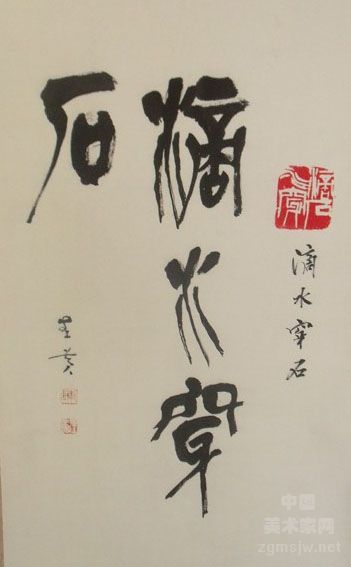 滴水穿石
滴水穿
石
中国
美术家网
zgmsjw.net